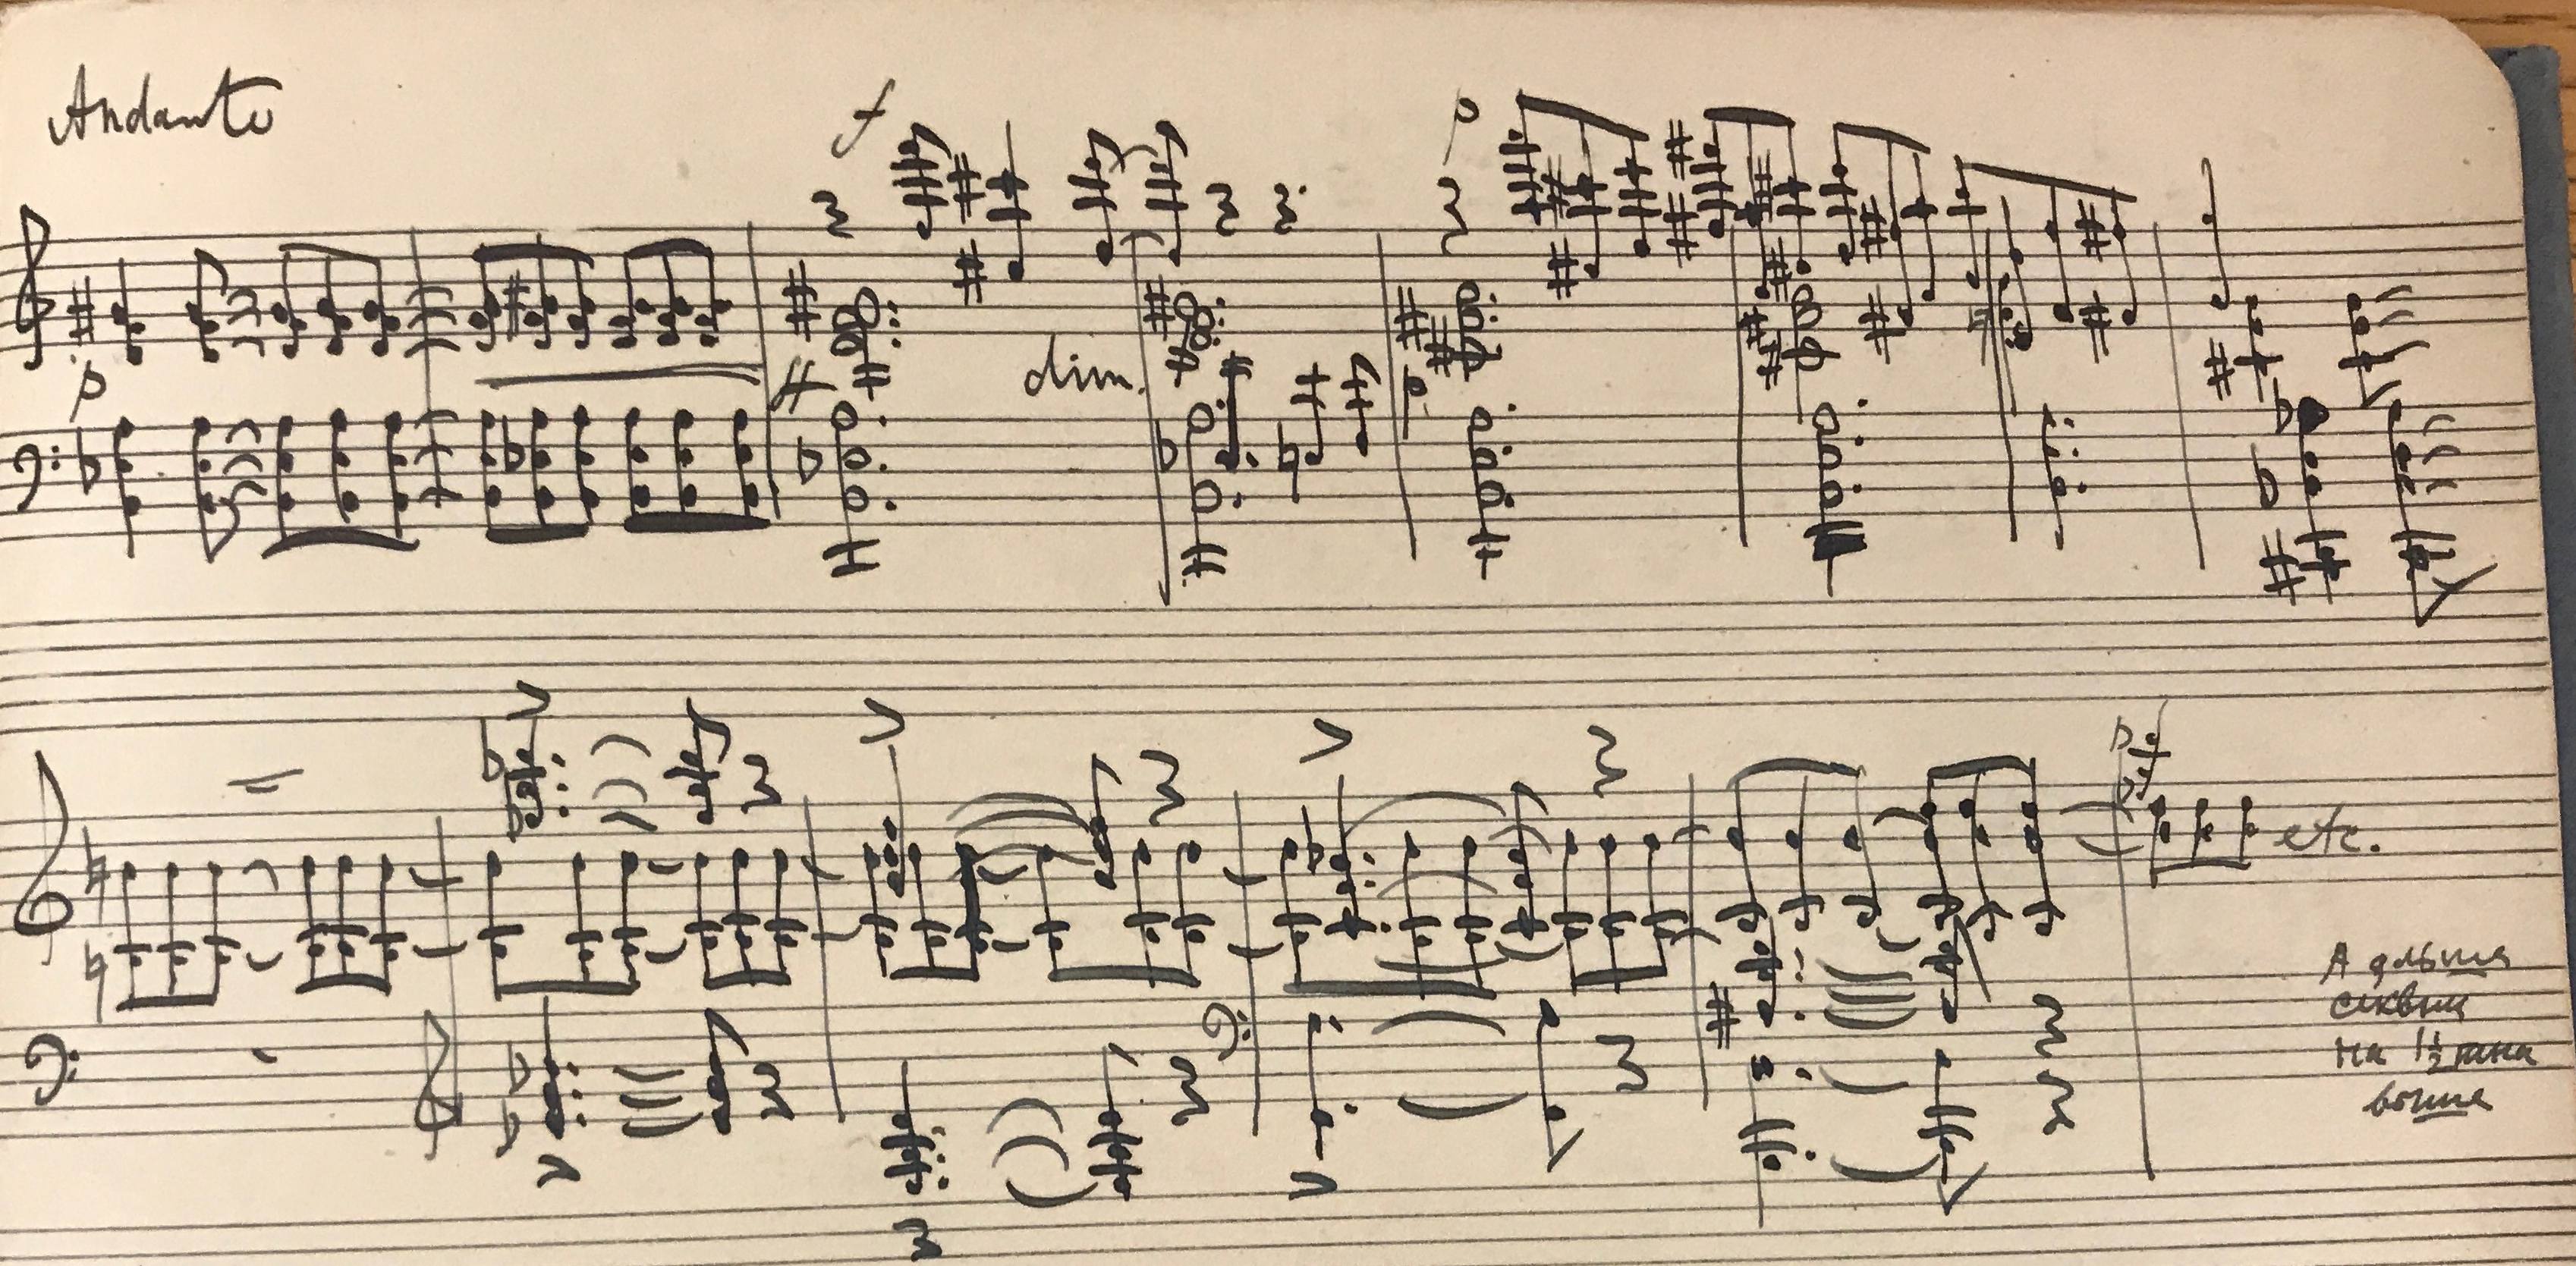 Andante
f
p
p
ff
dim.
p
etc.
А дальше
секвенц
на 1½ тона
выше